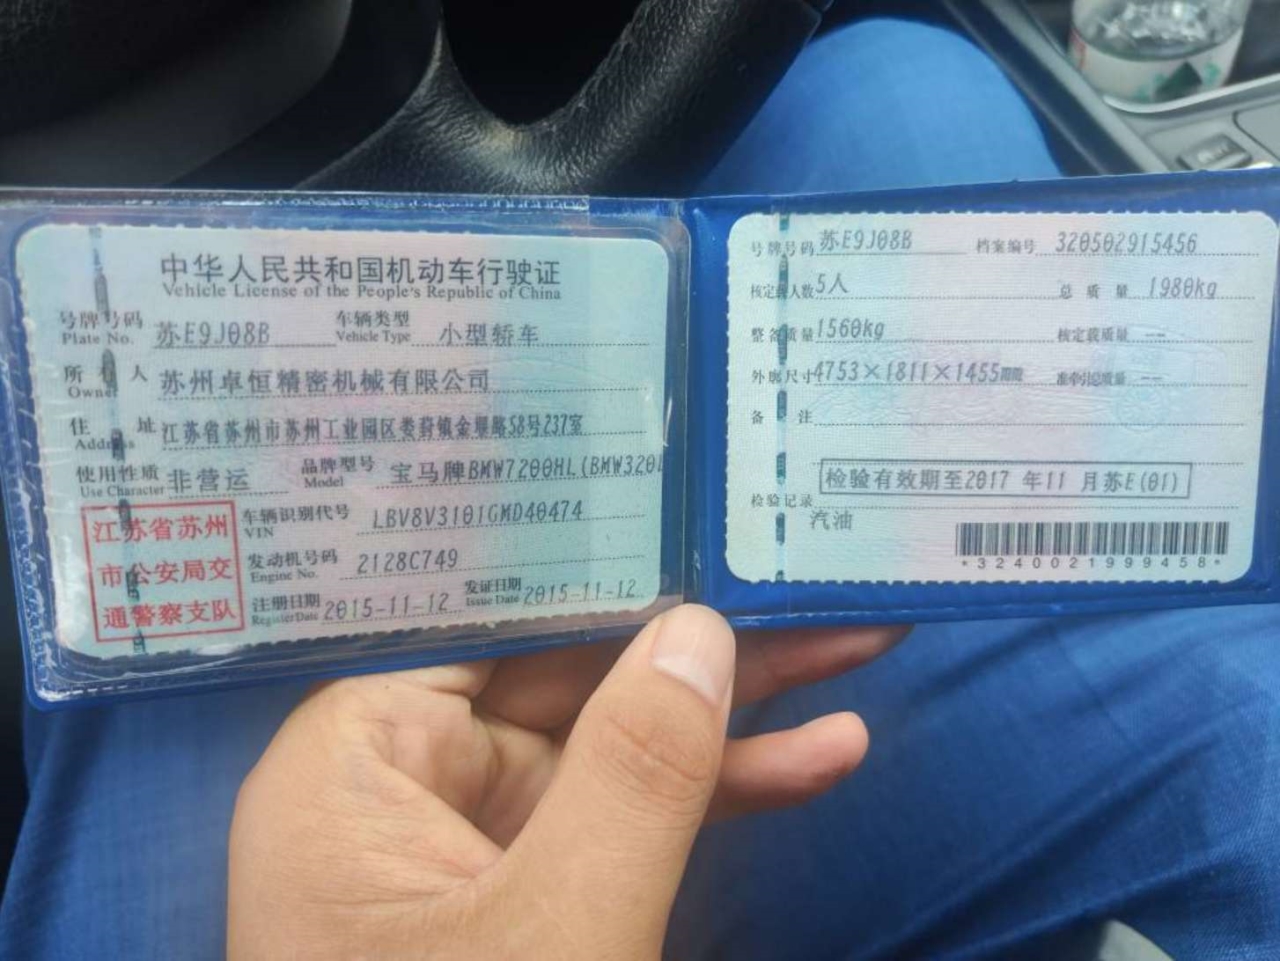 中华人民共和国机动车行驶证
Vehicle License of the People's Republic of China
号牌号码 Plate No. 苏E9J08B 车辆类型 Vehicle Type 小型轿车
所有人 Owner 苏州卓恒精密机械有限公司
住址 Address 江苏省苏州市苏州工业园区娄葑镇金堰路58号237室
使用性质 Use Character 非营运 品牌型号 Model 宝马牌BMW7200HL(BMW320L
车辆识别代号 VIN LBV8V3101GMD40474
发动机号码 Engine No. 2128C749
注册日期 Register Date 2015-11-12 发证日期 Issue Date 2015-11-12
江苏省苏州
市公安局交
通警察支队
号牌号码 苏E9J08B 档案编号 320502915456
核定载人数 5人 总质量 1980kg
整备质量 1560kg 核定载质量 --
外廓尺寸 4753×1811×1455 准牵引总质量 --
备注
检验有效期至2017 年11 月苏E(01)
检验记录
汽油
*3240021999458*